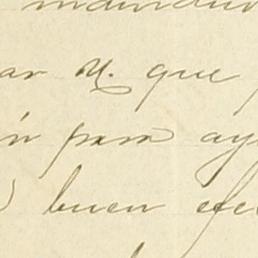 ar U. que
ín para ay
) buen efe